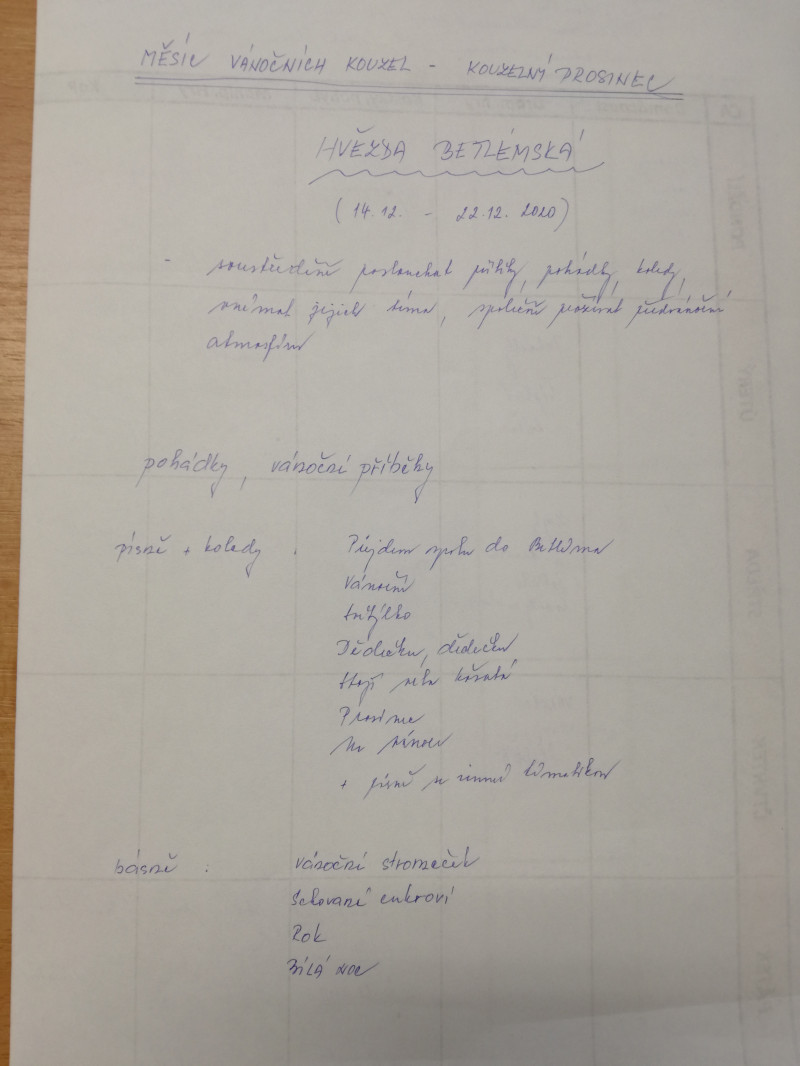 MĚSÍC VÁNOČNÍCH KOUZEL - KOUZELNÝ PROSINEC
HVĚZDA BETLÉMSKÁ
(14.12. - 22.12. 2020)
- soustředěně poslouchat příběhy, pohádky, koledy,
vnímat jejich téma, společně prožívat předvánoční
atmosféru
pohádky, vánoční příběhy
písně + koledy : Půjdem spolu do Betléma
Vánoční
Dědečku, dědečku
Stojí vrba košatá
Prosinec
Na vánoce
+ písně se zimní tématikou
básně : Vánoční stromeček
Schované cukroví
Rok
BÍLÁ NOC